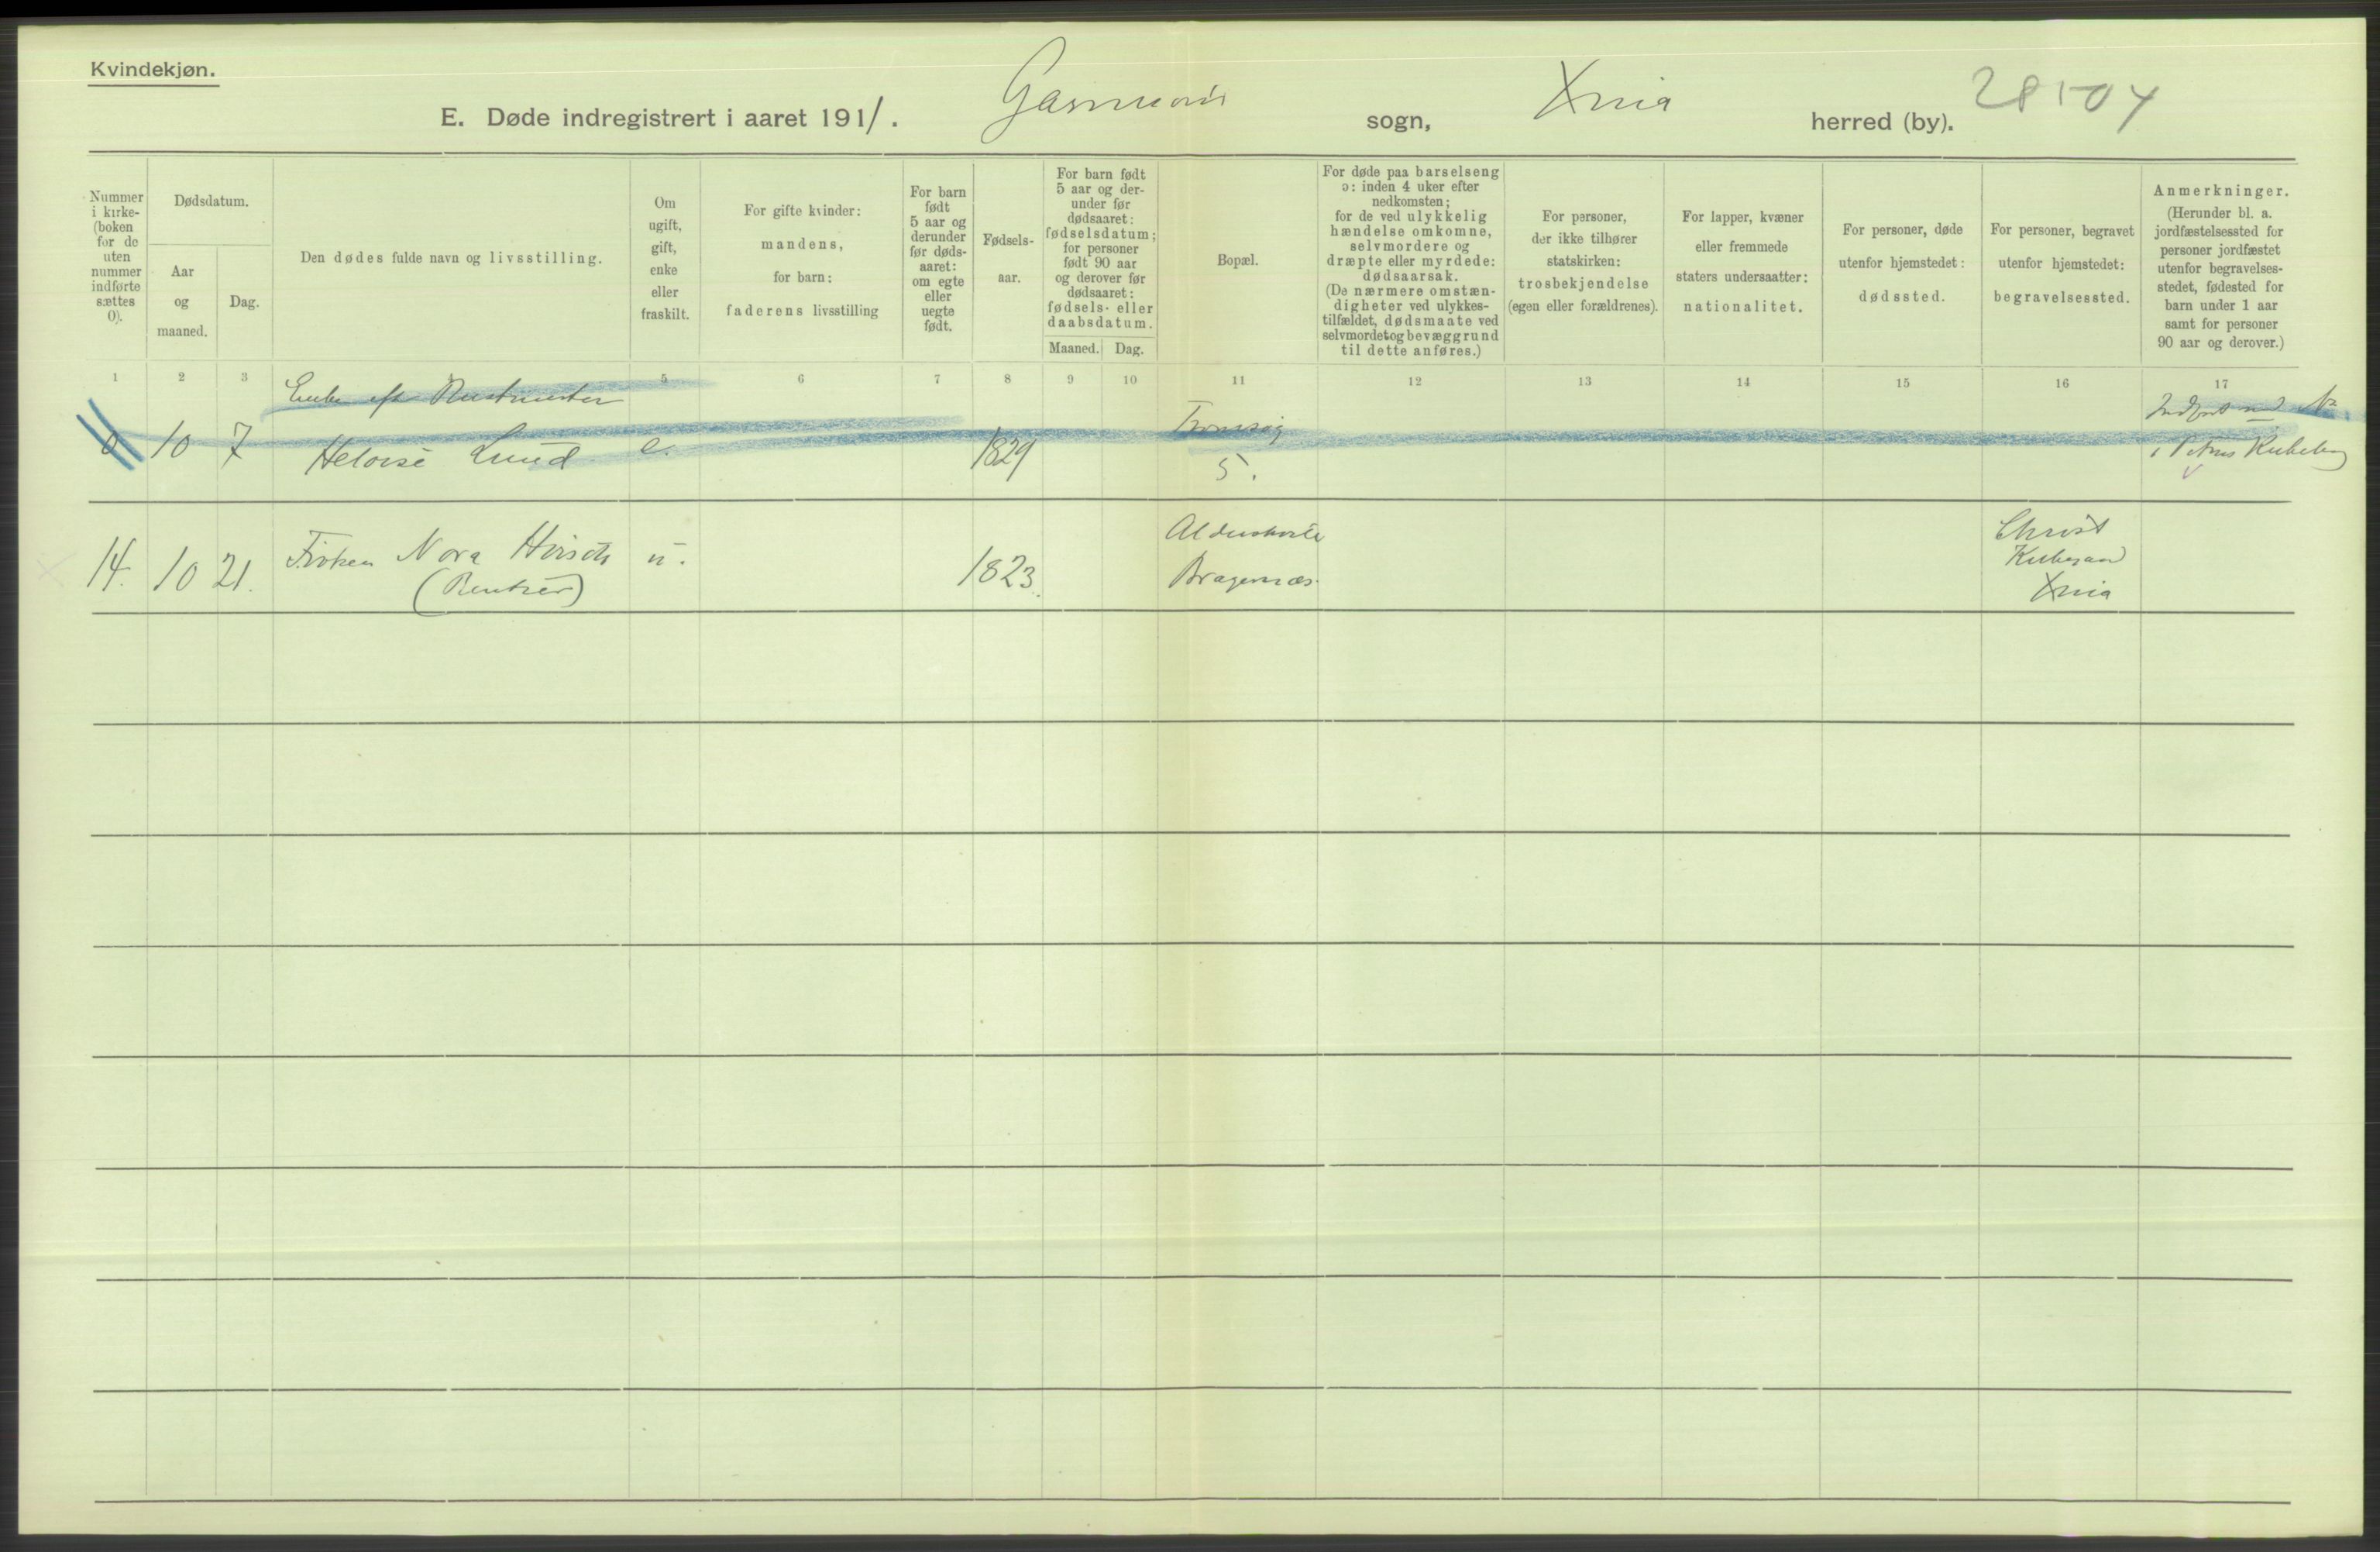 Kvindekjøn.
E. Døde indregistrert i aaret 1911. sogn, Xnia herred (by).
Nummer i kirke- (boken for de uten nummer indførte sættes 0).
Dødsdatum.
Aar og maaned.
Dag.
Den dødes fulde navn og livsstilling.
Om ugift, gift, enke eller fraskilt.
For gifte kvinder: mandens, for barn: faderens livsstilling
For barn født 5 aar og derunder før døds- aaret: om egte eller uegte født.
Fødsels- aar.
For barn født 5 aar og der- under før dødsaaret: fødselsdatum; for personer født 90 aar og derover før dødsaaret: fødsels- eller daabsdatum.
Maaned. Dag.
Bopæl.
For døde paa barselseng ɔ: inden 4 uker efter nedkomsten; for de ved ulykkelig hændelse omkomne, selvmordere og dræpte eller myrdede: dødsaarsak. (De nærmere omstæn- digheter ved ulykkes- tilfældet, dødsmaate ved selvmordet og bevæggrund til dette anføres.)
For personer, der ikke tilhører statskirken: trosbekjendelse (egen eller forældrenes).
For lapper, kvæner eller fremmede staters undersaatter: nationalitet.
For personer, døde utenfor hjemstedet: dødssted.
For personer, begravet utenfor hjemstedet: begravelsessted.
Anmerkninger. (Herunder bl. a. jordfæstelsessted for personer jordfæstet utenfor begravelses- stedet, fødested for barn under 1 aar samt for personer 90 aar og derover.)
1 2 3 4 5 6 7 8 9 10 11 12 13 14 15 16 17
Enke eft
0 10 7 Heloise Lund e. 1829 5.
14. 10 21. Frøken Nora u. 1823. Bragernæs.
(Rentier)
Christ
Xnia